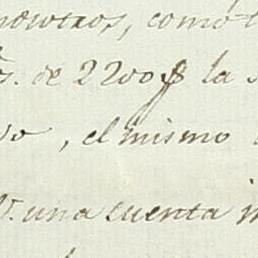 nosotros, como
de 2200$ la
, el mismo
una cuenta